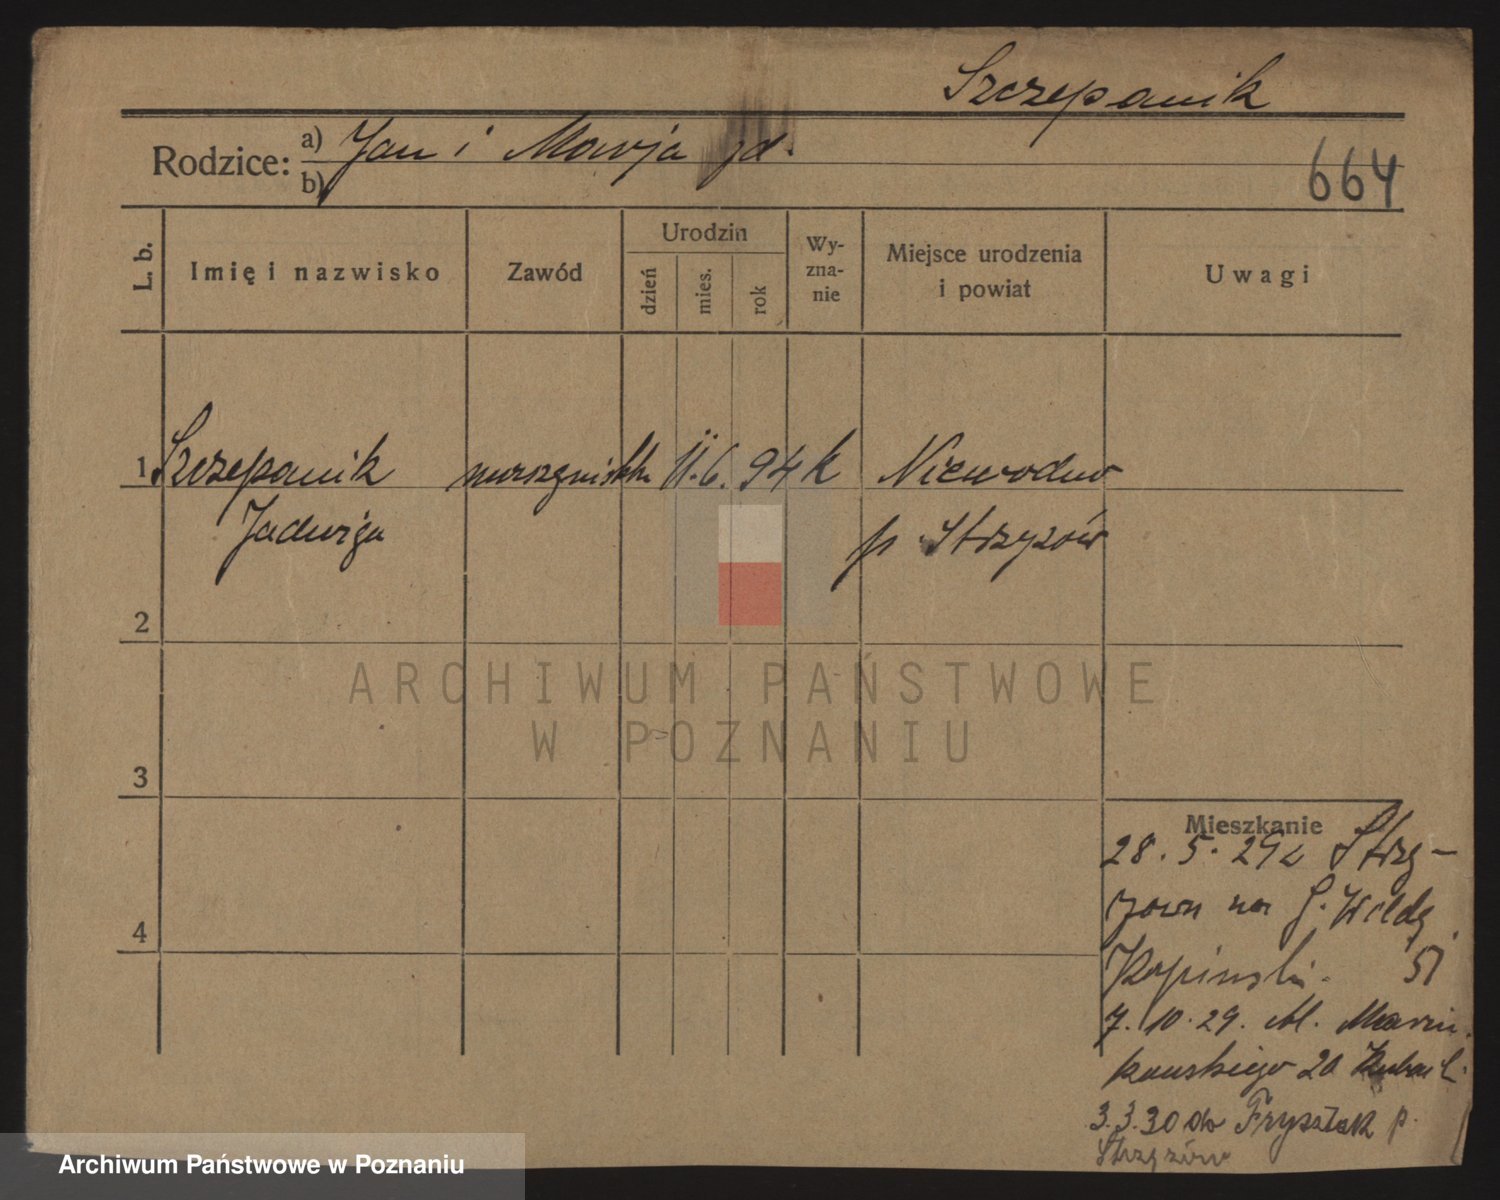 Szczepanik
Rodzice: a) Jan i Marja jd.
b)
664
L. b.
Imię i nazwisko
Zawód
Urodzin
dzień
mies.
rok
Wy-
zna-
nie
Miejsce urodzenia
i powiat
Uwagi
1 Szczepanik 11.6. 94 k Niewodno
Jadwiga p. Strzyzów
2
3
4
ARCHIWUM PAŃSTWOWE
W POZNANIU
Mieszkanie
28. 5. 29 z Strzy-
zowa na G. Wildę
51
7. 10. 29. Marcin
kowskiego 20
3.3.30 do Frysztak p.
Strzyzów
Archiwum Państwowe w Poznaniu